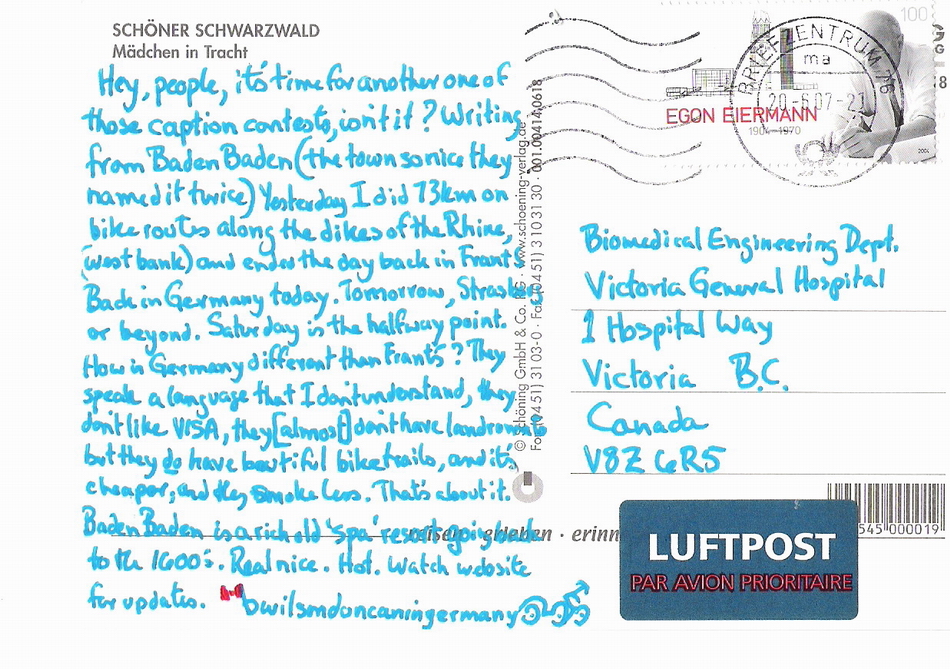 SCHÖNER SCHWARZWALD
Mädchen in Tracht
Hey, people, it's time for another one of
those caption contests, isn't it? Writing
from Baden Baden (the town so nice they
named it twice) Yesterday I did 73km on
bike routes along the dikes of the Rhine,
(west bank) and ended the day back in Frants
Back in Germany today. Tomorrow, Strasbourg
or beyond. Saturday is the halfway point.
How is Germany different than Frants? They
speak a language that I don't understand, they
don't like VISA, they [almost] don't have landromats
but they do have beautiful bike trails, and it's
cheaper, and they smoke less. That's about it.
Baden Baden is a rich old 'spa' resort going back
to the 1600's. Real nice. Hot. Watch website
for updates. bwilsondoncaningermany
© Schöning GmbH & Co. KG · www.schoening-verlag.de
(04 51) 31 03-0 · Fax (04 51) 3 10 31 30 · 001.004140618
reisen · erleben · erinn
100
EGON EIERMANN
1904–1970
2004
BRIEFZENTRUM 76
ma
20.-6.07-21
Biomedical Engineering Dept.
Victoria General Hospital
1 Hospital Way
Victoria B.C.
Canada
V8Z 6R5
545 000019
LUFTPOST
PAR AVION PRIORITAIRE